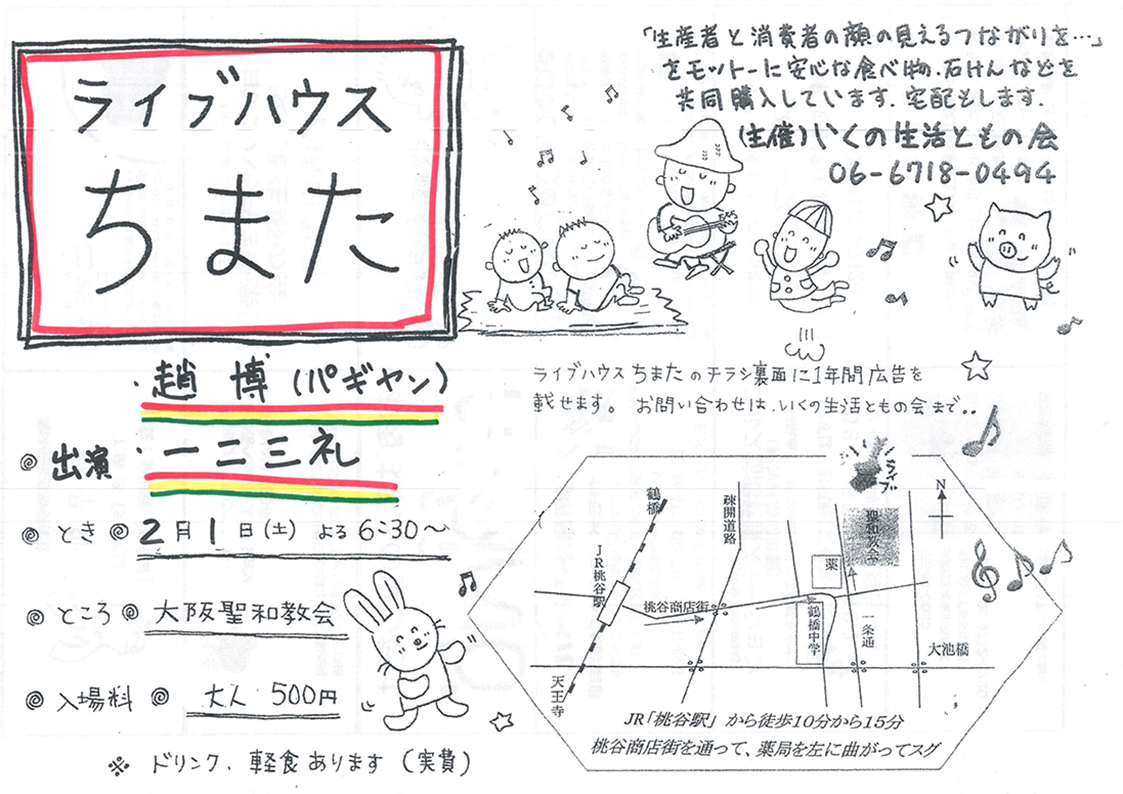 ライブハウス
ちまた
「生産者と消費者の顔の見えるつながりを…」
をモットーに安心な食べ物、石けんなどを
共同購入しています。宅配もします。
(主催)いくの生活ともの会
06-6718-0494
・趙 博(パギヤン)
◎ 出演 ・一二三礼
◎ とき ◎ 2月1日(土) よる6:30〜
◎ ところ ◎ 大阪聖和教会
◎ 入場料 ◎ 大人 500円
※ ドリンク、軽食あります(実費)
ライブハウスちまたのチラシ裏面に1年間広告を
載せます。 お問い合わせは、いくの生活ともの会まで..
鶴橋
JR桃谷駅
天王寺
疎開道路
桃谷商店街
鶴橋中学
薬
ライブ
聖和教会
一条通
N
大池橋
JR「桃谷駅」から徒歩10分から15分
桃谷商店街を通って、薬局を左に曲がってスグ